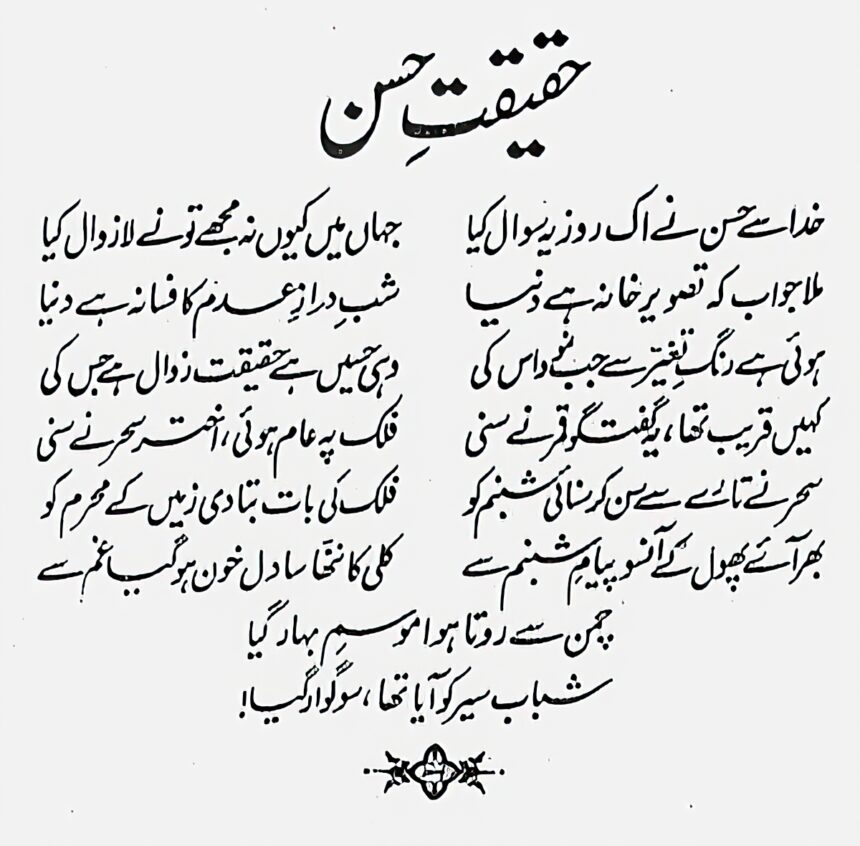 حقیقتِ حسن
خدا سے حسن نے اک روز یہ سوال کیا جہاں میں کیوں نہ مجھے تو نے لازوال کیا
ملا جواب کہ تصویر خانہ ہے دنیا شبِ درازِ عدم کا فسانہ ہے دنیا
ہوئی ہے رنگِ تغیّر سے جب نمود اس کی وہی حسیں ہے حقیقت زوال ہے جس کی
کہیں قریب تھا، یہ گفتگو قمر نے سنی فلک پہ عام ہوئی، اخترِ سحر نے سنی
سحر نے تارے سے سن کر سنائی شبنم کو فلک کی بات بتا دی زمیں کے محرم کو
بھر آئے پھول کے آنسو پیامِ شبنم سے کلی کا ننھا سا دل خون ہو گیا غم سے
چمن سے روتا ہوا موسمِ بہار گیا
شباب سیر کو آیا تھا، سوگوار گیا!